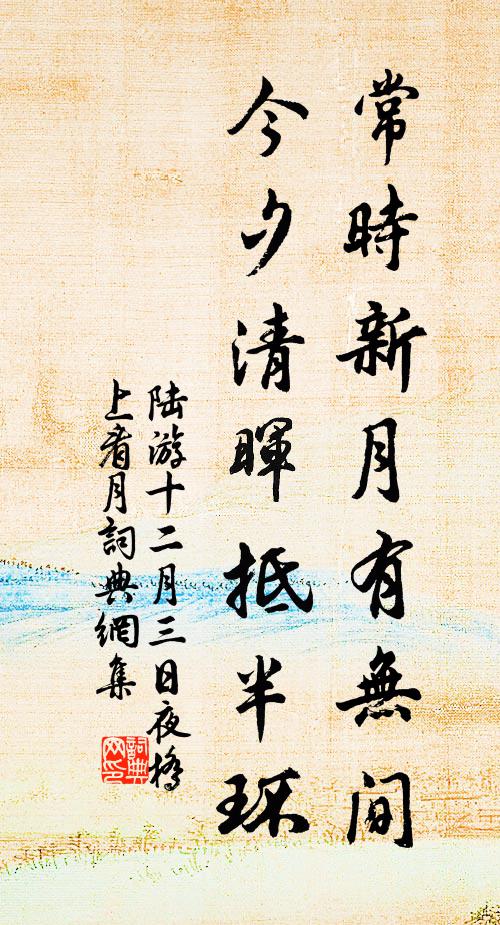 常時新月有無間
今夕清暉抵半环
陆游十二月三日夜橋
上看月詞典網集
詞典
网印